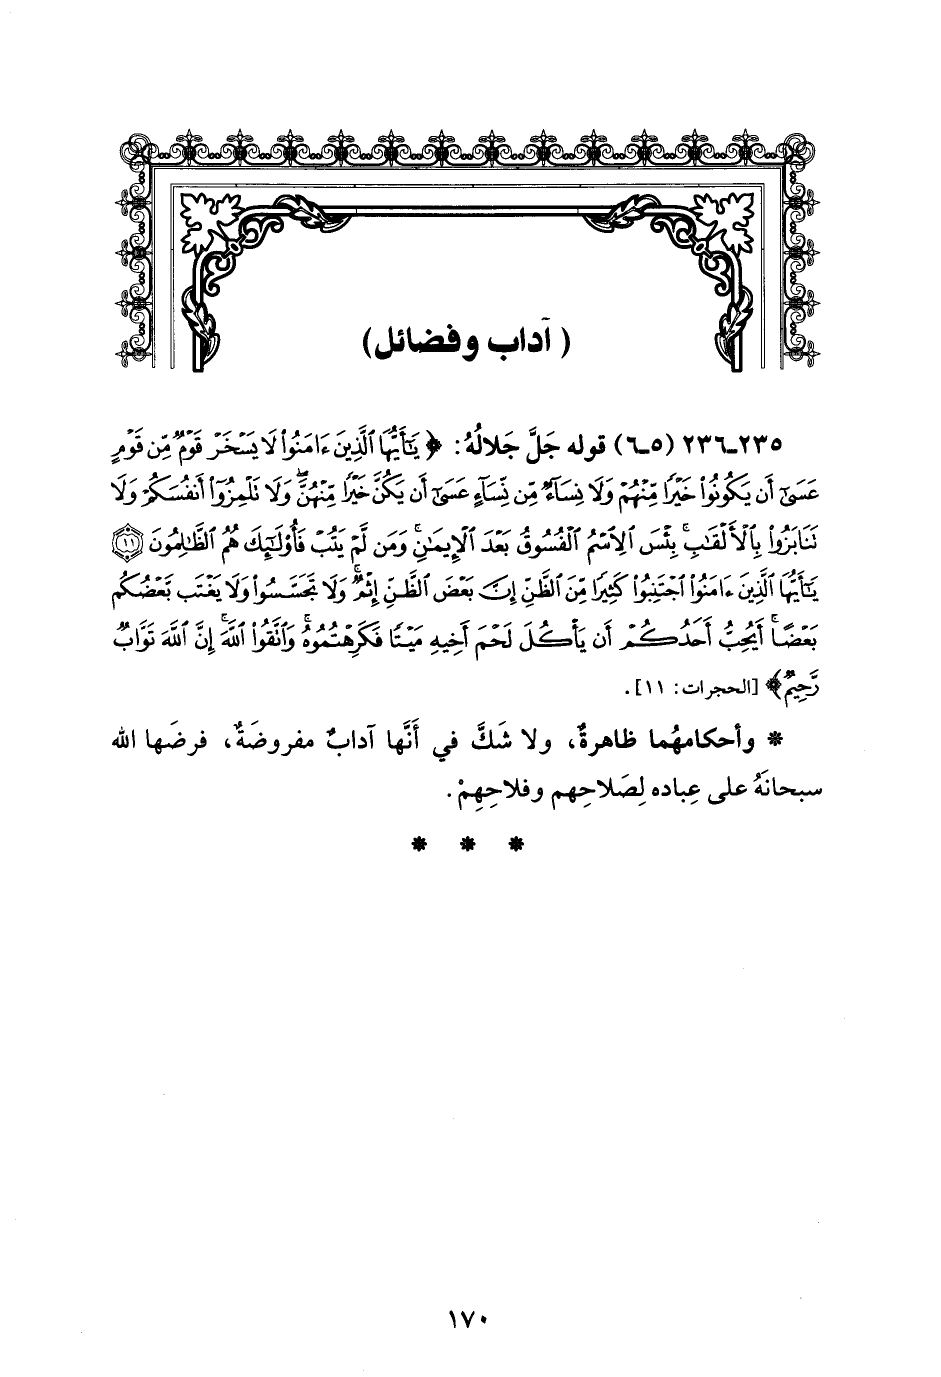 ( آداب وفضائل)
٢٣٥ـ٢٣٦ (٥ـ٦) قوله جَلَّ جَلالُهُ: ﴿ يَٰٓأَيُّهَا ٱلَّذِينَ ءَامَنُوا۟ لَا يَسْخَرْ قَوْمٌ مِّن قَوْمٍ
عَسَىٰٓ أَن يَكُونُوا۟ خَيْرًا مِّنْهُمْ وَلَا نِسَآءٌ مِّن نِّسَآءٍ عَسَىٰٓ أَن يَكُنَّ خَيْرًا مِّنْهُنَّۖ وَلَا تَلْمِزُوٓا۟ أَنفُسَكُمْ وَلَا
تَنَابَزُوا۟ بِٱلْأَلْقَٰبِۖ بِئْسَ ٱلِٱسْمُ ٱلْفُسُوقُ بَعْدَ ٱلْإِيمَٰنِۚ وَمَن لَّمْ يَتُبْ فَأُو۟لَٰٓئِكَ هُمُ ٱلظَّٰلِمُونَ ١١
يَٰٓأَيُّهَا ٱلَّذِينَ ءَامَنُوا۟ ٱجْتَنِبُوا۟ كَثِيرًا مِّنَ ٱلظَّنِّ إِنَّ بَعْضَ ٱلظَّنِّ إِثْمٌۖ وَلَا تَجَسَّسُوا۟ وَلَا يَغْتَب بَّعْضُكُم
بَعْضًاۚ أَيُحِبُّ أَحَدُكُمْ أَن يَأْكُلَ لَحْمَ أَخِيهِ مَيْتًا فَكَرِهْتُمُوهُۚ وَٱتَّقُوا۟ ٱللَّهَۚ إِنَّ ٱللَّهَ تَوَّابٌ
رَّحِيمٌ﴾ [الحجرات: ١١].
* وأحكامهُما ظاهرةٌ، ولا شكَّ في أَنَّها آدابٌ مفروضَةٌ، فرضَها الله
سبحانَهُ على عِباده لِصَلاحِهم وفلاحِهِمْ.
* * *
١٧٠